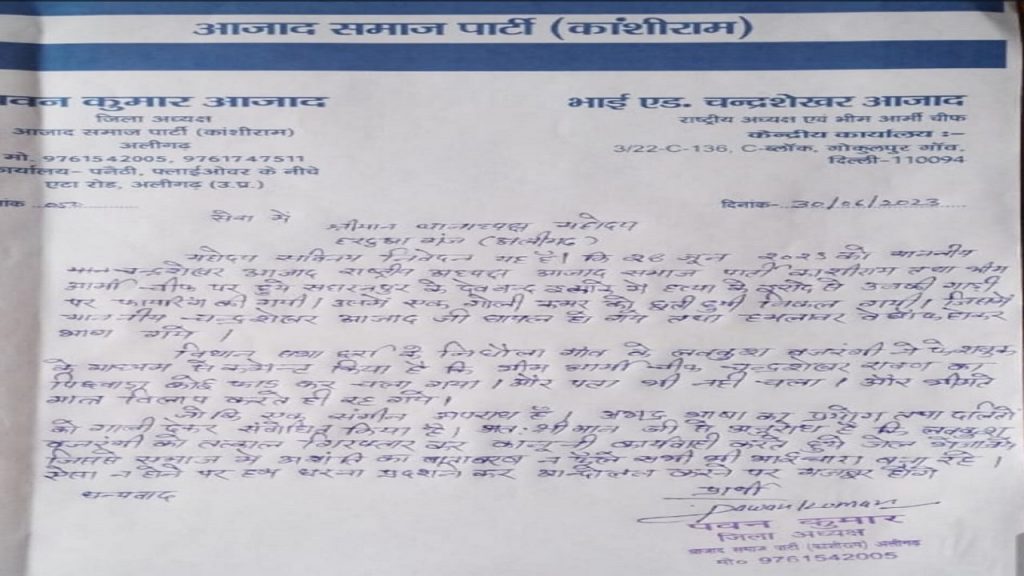 आजाद समाज पार्टी (कांशीराम)
पवन कुमार आजाद
जिला अध्यक्ष
आजाद समाज पार्टी (कांशीराम)
अलीगढ़
मो. 9761542005, 9761747511
कार्यालय- पनैठी, फ्लाईओवर के नीचे
एटा रोड, अलीगढ़ (उ.प्र.)
भाई एड. चन्द्रशेखर आजाद
राष्ट्रीय अध्यक्ष एवं भीम आर्मी चीफ
केन्द्रीय कार्यालय :-
3/22-C-136, C-ब्लॉक, गोकुलपुर गाँव,
दिल्ली-110094
दिनांक- 30/06/2023
सेवा में
श्रीमान थानाध्यक्ष महोदय
हरदुआ गंज (अलीगढ़)
महोदय सविनय निवेदन यह है। कि 28 जून 2023 को माननीय
चन्द्रशेखर आजाद राष्ट्रीय अध्यक्ष आजाद समाज पार्टी काशीराम तथा भीम
आर्मी चीफ पर हुये सहारनपुर के देवबन्द में हत्या के से उनकी गाड़ी
पर फायरिंग की गयी। उसमें एक गोली कमर को छूती हुयी निकल गयी। जिसमें
माननीय चन्द्रशेखर आजाद जी घायल हो गये तथा हमलावर होकर
भाग गये।
विधान सभा के गांव के लवकुश बजरंगी ने फेसबुक
के माध्यम से कमेन्ट किया है कि भीम आर्मी चीफ चन्द्रशेखर रावण का
पिछवाड़ा कोई फाड़ कर चला गया। और पता भी नही चला। और भीमटे
विलाप करते ही रह गये।
जो कि एक संगीन अपराध है। अभद्र भाषा का प्रयोग तथा दलितो
को गाली देकर संबोधित किया है। अतः श्रीमान जी से अनुरोध है कि लवकुश
बजरंगी को तत्काल गिरफ्तार कर कानूनी कार्यवाही करते हुये जेल भेजा
जिससे समाज में अशांति का वातावरण न सभी में भाईचारा बना रहे।
ऐसा न होने पर हम धरना प्रदर्शन कर आन्दोलन करने पर मजबूर होंगे
धन्यवाद
प्रार्थी
Pawan Kumar
पवन कुमार
जिला अध्यक्ष
आजाद समाज पार्टी (कांशीराम) अलीगढ़
मो० 9761542005